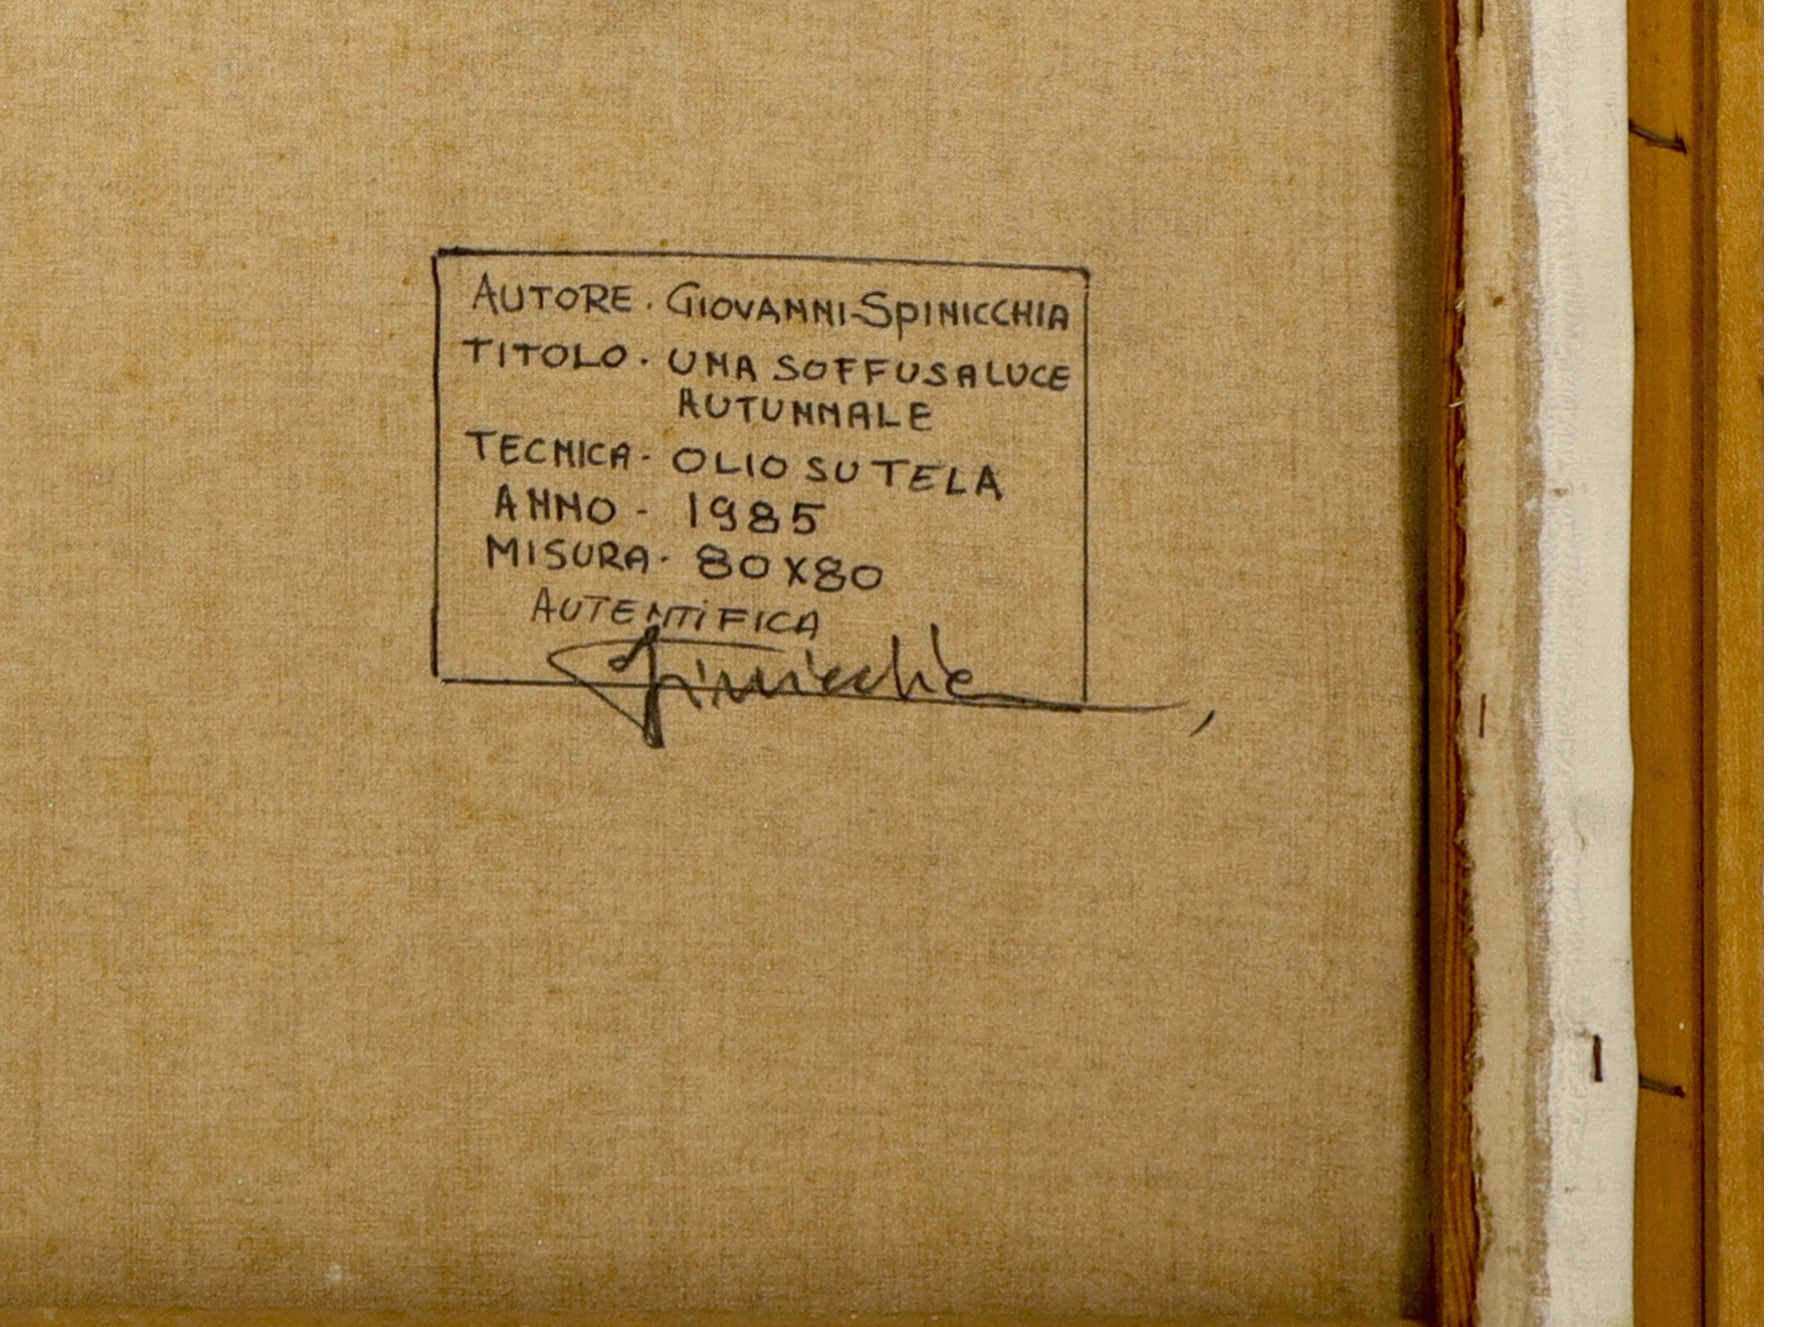 AUTORE. GIOVANNI-SPINICCHIA
TITOLO. UNA SOFFUSA LUCE
AUTUNNALE
TECNICA- OLIO SU TELA
ANNO- 1985
MISURA- 80X80
AUTENTIFICA
Spinicchia